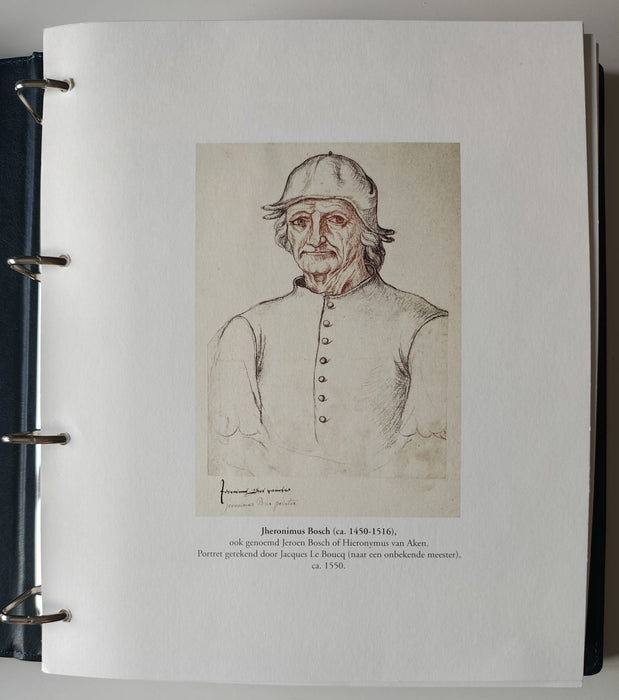 Jeronimus Bos paintre
Jheronimus Bosch (ca. 1450-1516),
ook genoemd Jeroen Bosch of Hieronymus van Aken.
Portret getekend door Jacques Le Boucq (naar een onbekende meester),
ca. 1550.